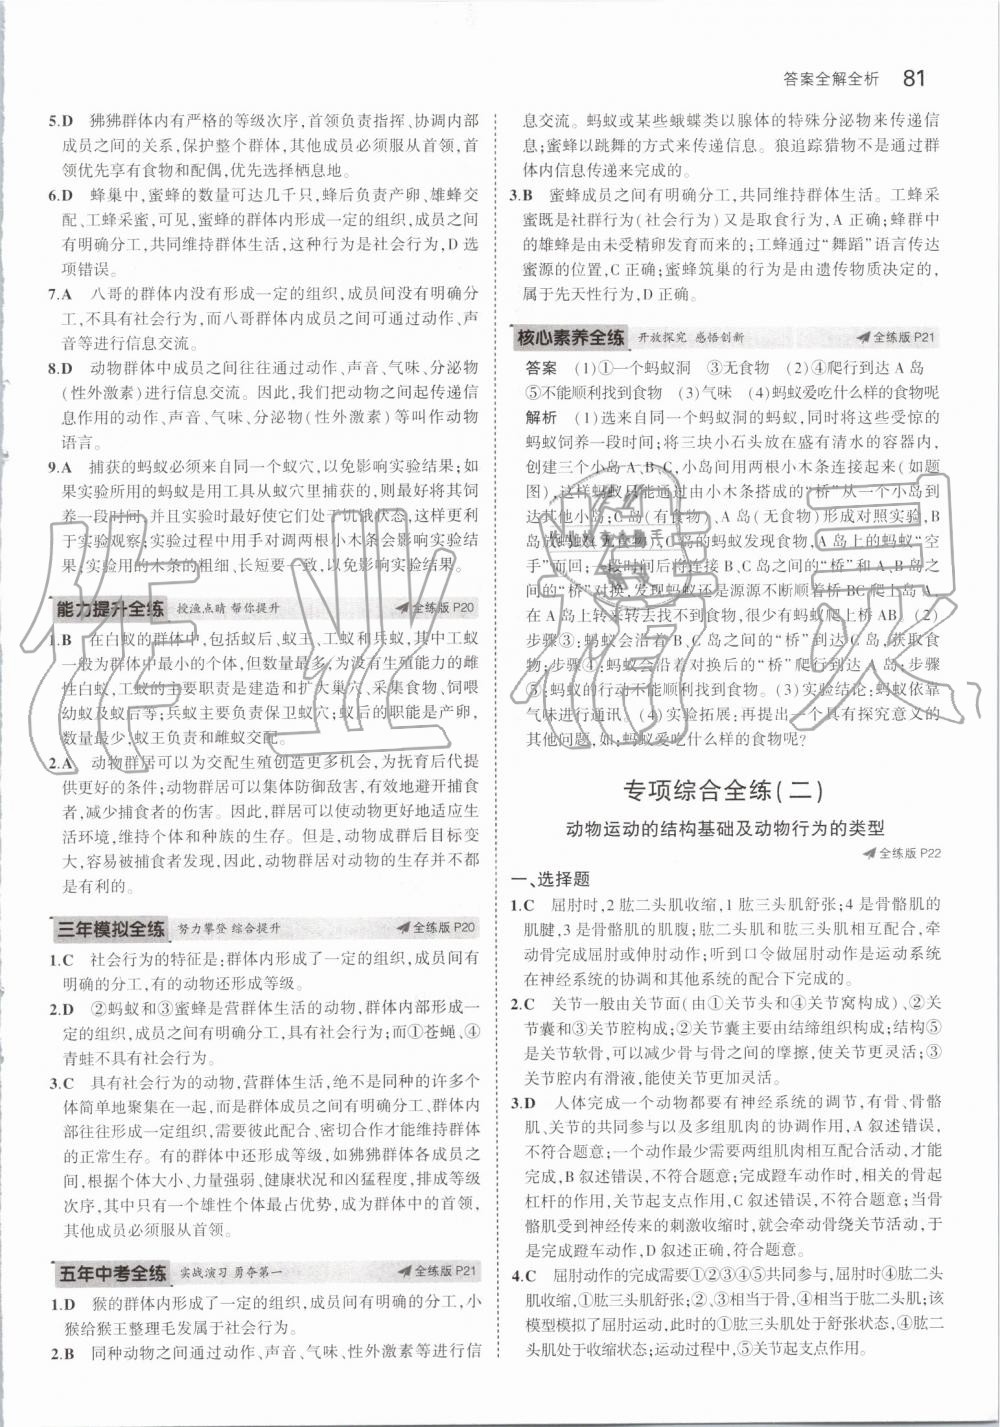 答案全解全析 81
5.D 狒狒群体内有严格的等级次序,首领负责指挥、协调内部
成员之间的关系,保护整个群体,其他成员必须服从首领,首
领优先享有食物和配偶,优先选择栖息地。
6.D 蜂巢中,蜜蜂的数量可达几千只,蜂后负责产卵、雄蜂交
配、工蜂采蜜,可见,蜜蜂的群体内形成一定的组织,成员之间
有明确分工,共同维持群体生活,这种行为是社会行为,D 选
项错误。
7.A 八哥的群体内没有形成一定的组织,成员间没有明确分
工,不具有社会行为,而八哥群体内成员之间可通过动作、声
音等进行信息交流。
8.D 动物群体中成员之间往往以动作、声音、气味、分泌物
(性外激素)进行信息交流。因此,我们把动物之间起传递信
息作用的动作、声音、气味、分泌物(性外激素)等叫作动物
语言。
9.A 捕获的蚂蚁必须来自同一个蚁穴,以免影响实验结果;如
果实验所用的蚂蚁是用工具从蚁穴里捕获的,则最好将其饲
养一段时间,并且实验时最好使它们处于饥饿状态,这样更利
于实验观察;实验过程中用手对调两根小木条会影响实验结
果;实验用的木条的粗细、长短要一致,以免影响实验结果。
能力提升全练 授渔点睛 帮你提升 全练版 P20
1.B 在白蚁的群体中,包括蚁后、蚁王、工蚁和兵蚁,其中工蚁
一般为群体中最小的个体,但数量最多,为没有生殖能力的雌
性白蚁,工蚁的主要职责是建造和扩大巢穴、采集食物、饲喂
幼蚁及蚁后等;兵蚁主要负责保卫蚁穴;蚁后的职能是产卵,
数量最少,蚁王负责和雌蚁交配。
2.A 动物群居可以为交配生殖创造更多机会,为抚育后代提
供更好的条件;动物群居可以集体防御敌害,有效地避开捕食
者,减少捕食者的伤害。因此,群居可以使动物更好地适应生
活环境,维持个体和种族的生存。但是,动物成群后目标变
大,容易被捕食者发现,因此,动物群居对动物的生存并不都
是有利的。
三年模拟全练 努力攀登 综合提升 全练版 P20
1.C 社会行为的特征是:群体内形成了一定的组织,成员间有
明确的分工,有的动物还形成等级。
2.D ②蚂蚁和③蜜蜂是营群体生活的动物,群体内部形成一
定的组织,成员之间有明确分工,具有社会行为;而①苍蝇、④
青蛙不具有社会行为。
3.C 具有社会行为的动物,营群体生活,绝不是同种的许多个
体简单地聚集在一起,而是群体成员之间有明确分工,群体内
部往往形成一定组织,需要彼此配合、密切合作才能维持群体
的正常生存。有的群体中还形成等级,如狒狒群体各成员之
间,根据个体大小、力量强弱、健康状况和凶猛程度,排成等级
次序,其中只有一个雄性个体最占优势,成为群体中的首领,
其他成员必须服从首领。
五年中考全练 实战演习 勇夺第一 全练版 P21
1.D 猴的群体内形成了一定的组织,成员间有明确的分工,小
猴给猴王整理毛发属于社会行为。
2.B 同种动物之间通过动作、声音、气味、性外激素等进行信
息交流。蚂蚁或某些蛾蝶类以腺体的特殊分泌物来传递信
息;蜜蜂以跳舞的方式来传递信息。狼追踪猎物不是通过群
体内信息传递来完成的。
3.B 蜜蜂成员之间有明确分工,共同维持群体生活。工蜂采
蜜既是社群行为(社会行为)又是取食行为,A 正确;蜂群中
的雄蜂是由未受精卵发育而来的;工蜂通过“舞蹈”语言传达
蜜源的位置,C 正确;蜜蜂筑巢的行为是由遗传物质决定的,
属于先天性行为,D 正确。
核心素养全练 开放探究 感悟创新 全练版 P21
答案 (1)①一个蚂蚁洞 ③无食物 (2)④爬行到达 A 岛
⑤不能顺利找到食物 (3)气味 (4)蚂蚁爱吃什么样的食物呢
解析 (1)选来自同一个蚂蚁洞的蚂蚁,同时将这些受惊的
蚂蚁饲养一段时间;将三块小石头放在盛有清水的容器内,
创建三个小岛 A、B、C,小岛间用两根小木条连接起来(如题
图),这样蚂蚁只能通过由小木条搭成的“桥”从一个小岛到
达其他小岛;C 岛(有食物)、A 岛(无食物)形成对照实验,B
岛放蚂蚁、无食物;C 岛的蚂蚁发现食物,A 岛上的蚂蚁“空
手”而回;一段时间后将连接 B、C 之间的木条和 A、B 之间的
木条(桥)对换,发现蚂蚁还是源源不断地沿着桥 BC 爬上 A 岛,
在 A 岛上转来转去找不到食物,很少有蚂蚁爬上桥 AB。(2)
步骤③:蚂蚁会沿着 B、C 岛之间的“桥”到达 C 岛,获取食
物;步骤④:蚂蚁会沿着对换后的“桥”爬行到达 A 岛;步骤
⑤:蚂蚁的行动不能顺利找到食物。(3)实验结论:蚂蚁依靠
气味进行通讯。(4)实验拓展:再提出一个具有探究意义的
其他问题,如:蚂蚁爱吃什么样的食物呢?
专项综合全练(二)
动物运动的结构基础及动物行为的类型
全练版 P22
一、选择题
1.C 屈肘时,2 肱二头肌收缩,1 肱三头肌舒张;4 是骨骼肌的
肌腱,3 是骨骼肌的肌腹;肱二头肌和肱三头肌相互配合,牵
动骨完成屈肘或伸肘动作;听到口令做屈肘动作是运动系统
在神经系统的协调和其他系统的配合下完成的。
2.C 关节一般由关节面(由①关节头和④关节窝构成)、②关
节囊和③关节腔构成;②关节囊主要由结缔组织构成;结构⑤
是关节软骨,可以减少骨与骨之间的摩擦,使关节更灵活;③
关节腔内有滑液,能使关节更加灵活。
3.D 人体完成一个动物都要有神经系统的调节,有骨、骨骼
肌、关节的共同参与以及多组肌肉的协调作用,A 叙述错误,
不符合题意;一个动作最少需要两组肌肉相互配合,才能
完成,B 叙述错误,不符合题意;完成蹬车动作时,相关的骨起
杠杆的作用,关节起支点作用,C 叙述错误,不符合题意;当骨
骼肌受到神经传来的刺激收缩时,就会牵动骨绕关节活动,于
是完成蹬车动作,D 叙述正确,符合题意。
4.C 屈肘动作的完成需要①②③④⑤共同参与,④肱二头
肌收缩,①肱三头肌舒张;②、③相当于骨,④相当于肱二头肌;该
模型模拟了屈肘运动,此时的①肱三头肌处于舒张状态,④肱二
头肌处于收缩状态;运动过程中,⑤关节起支点作用。